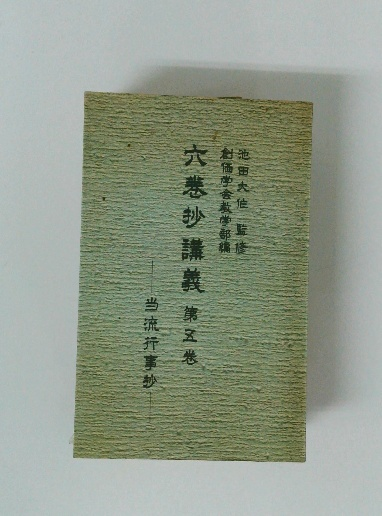 池田大作 監修
創価学会教学部編
六巻抄講義 第五巻
──当流行事抄──